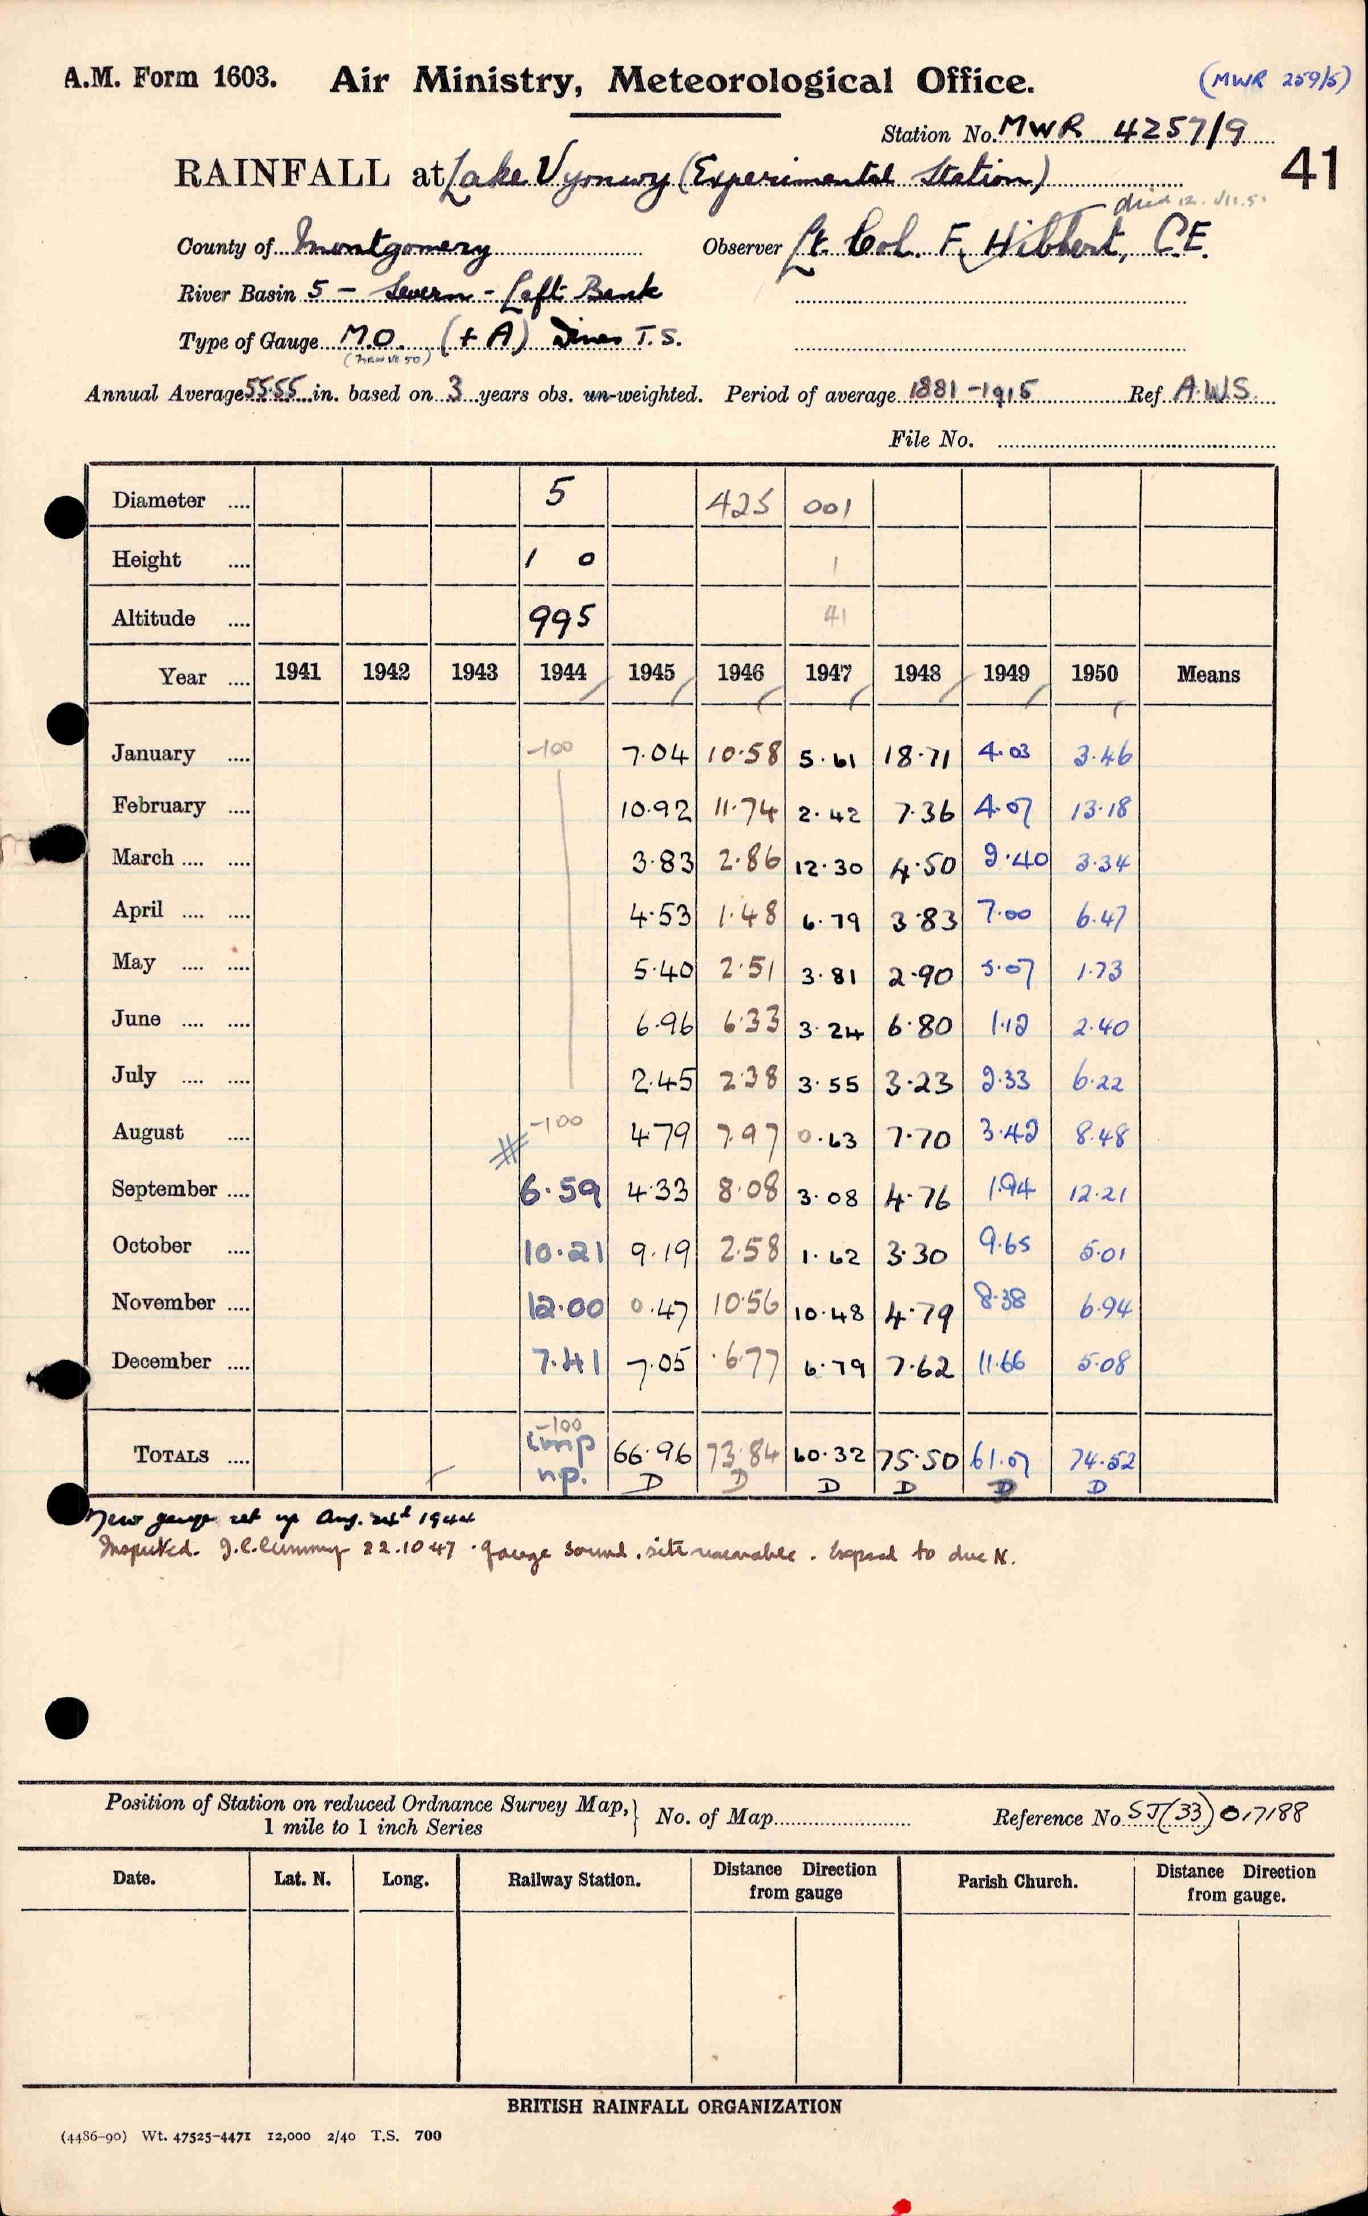 A.M. Form 1603. Air Ministry, Meteorological Office. (MWR 259/5)
Station No. MWR 4257/9
41
RAINFALL at Lake Vyrnwy (Experimental Station)
died
County of Montgomery Observer Lt. Col. F. Hibbert, C.E.
River Basin 5 - Severn - Left Bank
Type of Gauge M.O. (+ A) Dines T.S.
Annual Average 55.55 in. based on 3 years obs. un-weighted. Period of average 1881-1915 Ref A.W.S.
File No.
Diameter .... 5 425 001
Height .... 1 0 1
Altitude .... 995 41
Year .... 1941 1942 1943 1944 1945 1946 1947 1948 1949 1950 Means
January .... -100 7.04 10.58 5.61 18.71 4.03 3.46
February .... 10.92 11.74 2.42 7.36 4.07 13.18
March .... .... 3.83 2.86 12.30 4.50 2.40 3.34
April .... .... 4.53 1.48 6.79 3.83 7.00 6.47
May .... .... 5.40 2.51 3.81 2.90 5.07 1.73
June .... .... 6.96 6.33 3.24 6.80 1.12 2.40
July .... .... 2.45 2.38 3.55 3.23 2.33 6.22
August .... -100 4.79 7.97 0.63 7.70 3.42 8.48
September .... 6.59 4.33 8.08 3.08 4.76 1.94 12.21
October .... 10.21 9.19 2.58 1.62 3.30 9.65 5.01
November .... 12.00 0.47 10.56 10.48 4.79 8.38 6.94
December .... 7.41 7.05 6.77 6.79 7.62 11.66 5.08
-100
TOTALS .... imp 66.96 73.84 60.32 75.50 61.07 74.52
np. D D D D D D
New gauge set up Aug. 24th 1944
Inspected. 22.10.47. gauge sound, site reasonable. Exposed to due N.
Position of Station on reduced Ordnance Survey Map, } No. of Map Reference No SJ(33) 017188
1 mile to 1 inch Series
Date. Lat. N. Long. Railway Station. Distance Direction from gauge Parish Church. Distance Direction from gauge.
BRITISH RAINFALL ORGANIZATION
(4486-90) Wt. 47525-4471 12,000 2/40 T.S. 700